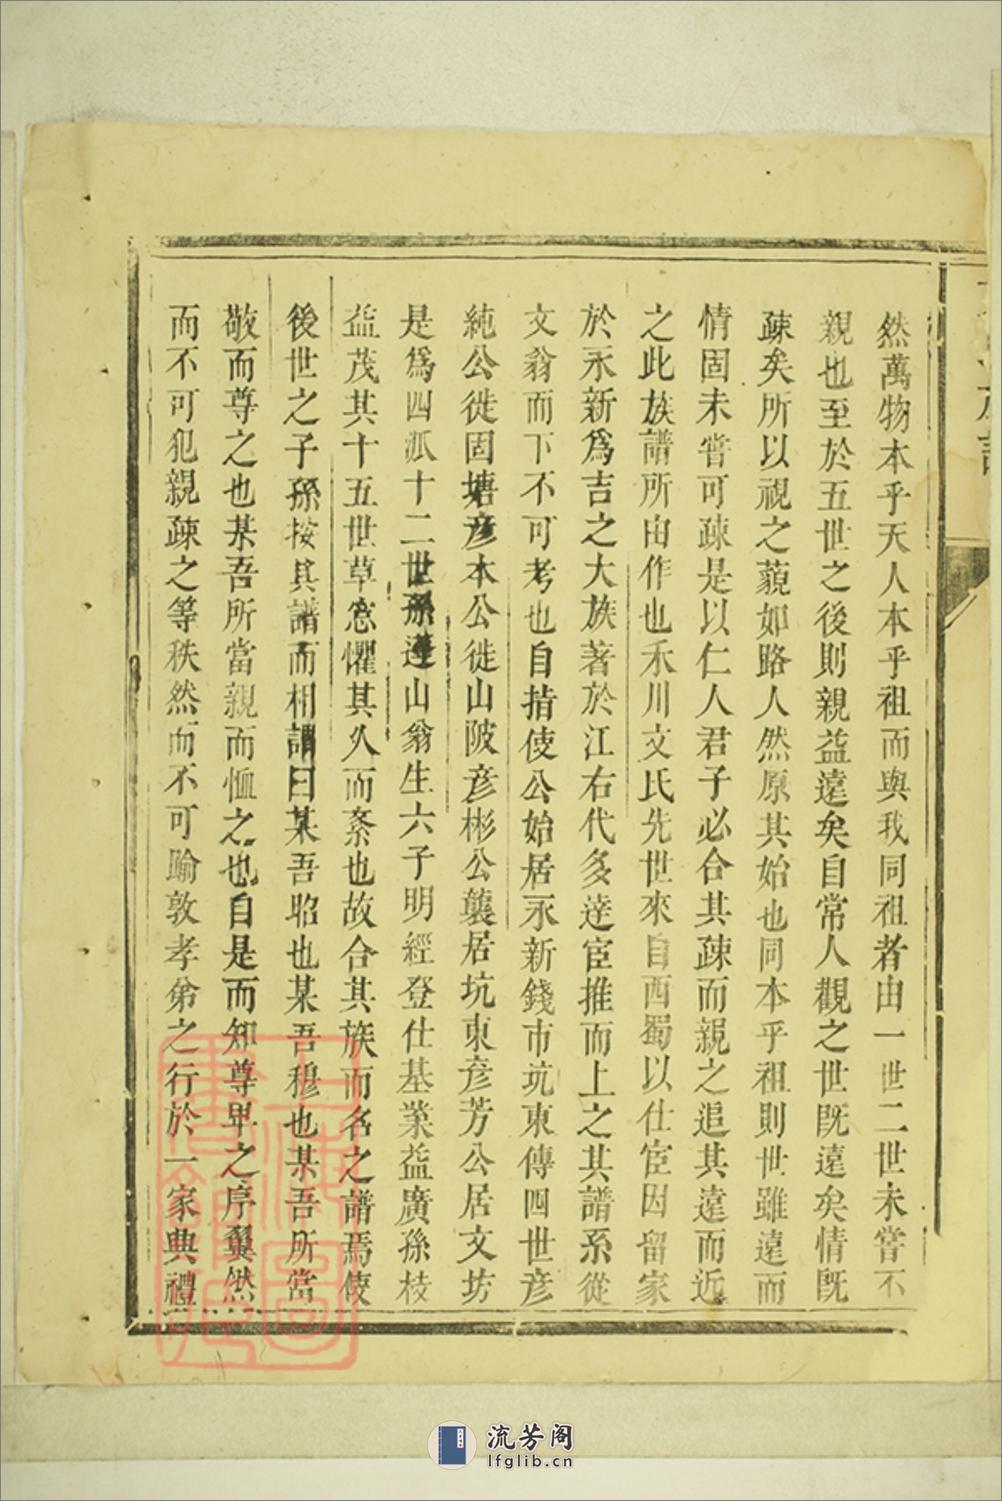 然萬物本乎天人本乎祖而與我同祖者由一世二世未嘗不
親也至於五世之後則親益遠矣自常人觀之世既遠矣情既
疎矣所以視之藐如路人然原其始也同本乎祖則世雖遠而
情固未嘗可疎是以仁人君子必合其疎而親之追其遠而近
之此族譜所由作也禾川文氏先世來自西蜀以仕宦因留家
於永新為吉之大族著於江右代多達宦推而上之其譜系從
文翁而下不可考也自指使公始居永新錢市坑東傳四世彥
純公徙固塘彥本公徙山陂彥彬公襲居坑東彥芳公居文坊
是爲四派十二世孫蓮山翁生六子明經登仕基業益廣孫枝
益茂其十五世草窓懼其久而紊也故合其族而名之譜焉使
後世之子孫按其譜而相謂曰某吾昭也某吾穆也某吾所當
敬而尊之也某吾所當親而恤之也自是而知尊卑之序翼然
而不可犯親疎之等秩然而不可踰敦孝弟之行於一家典禮
流芳阁
lfglib.cn